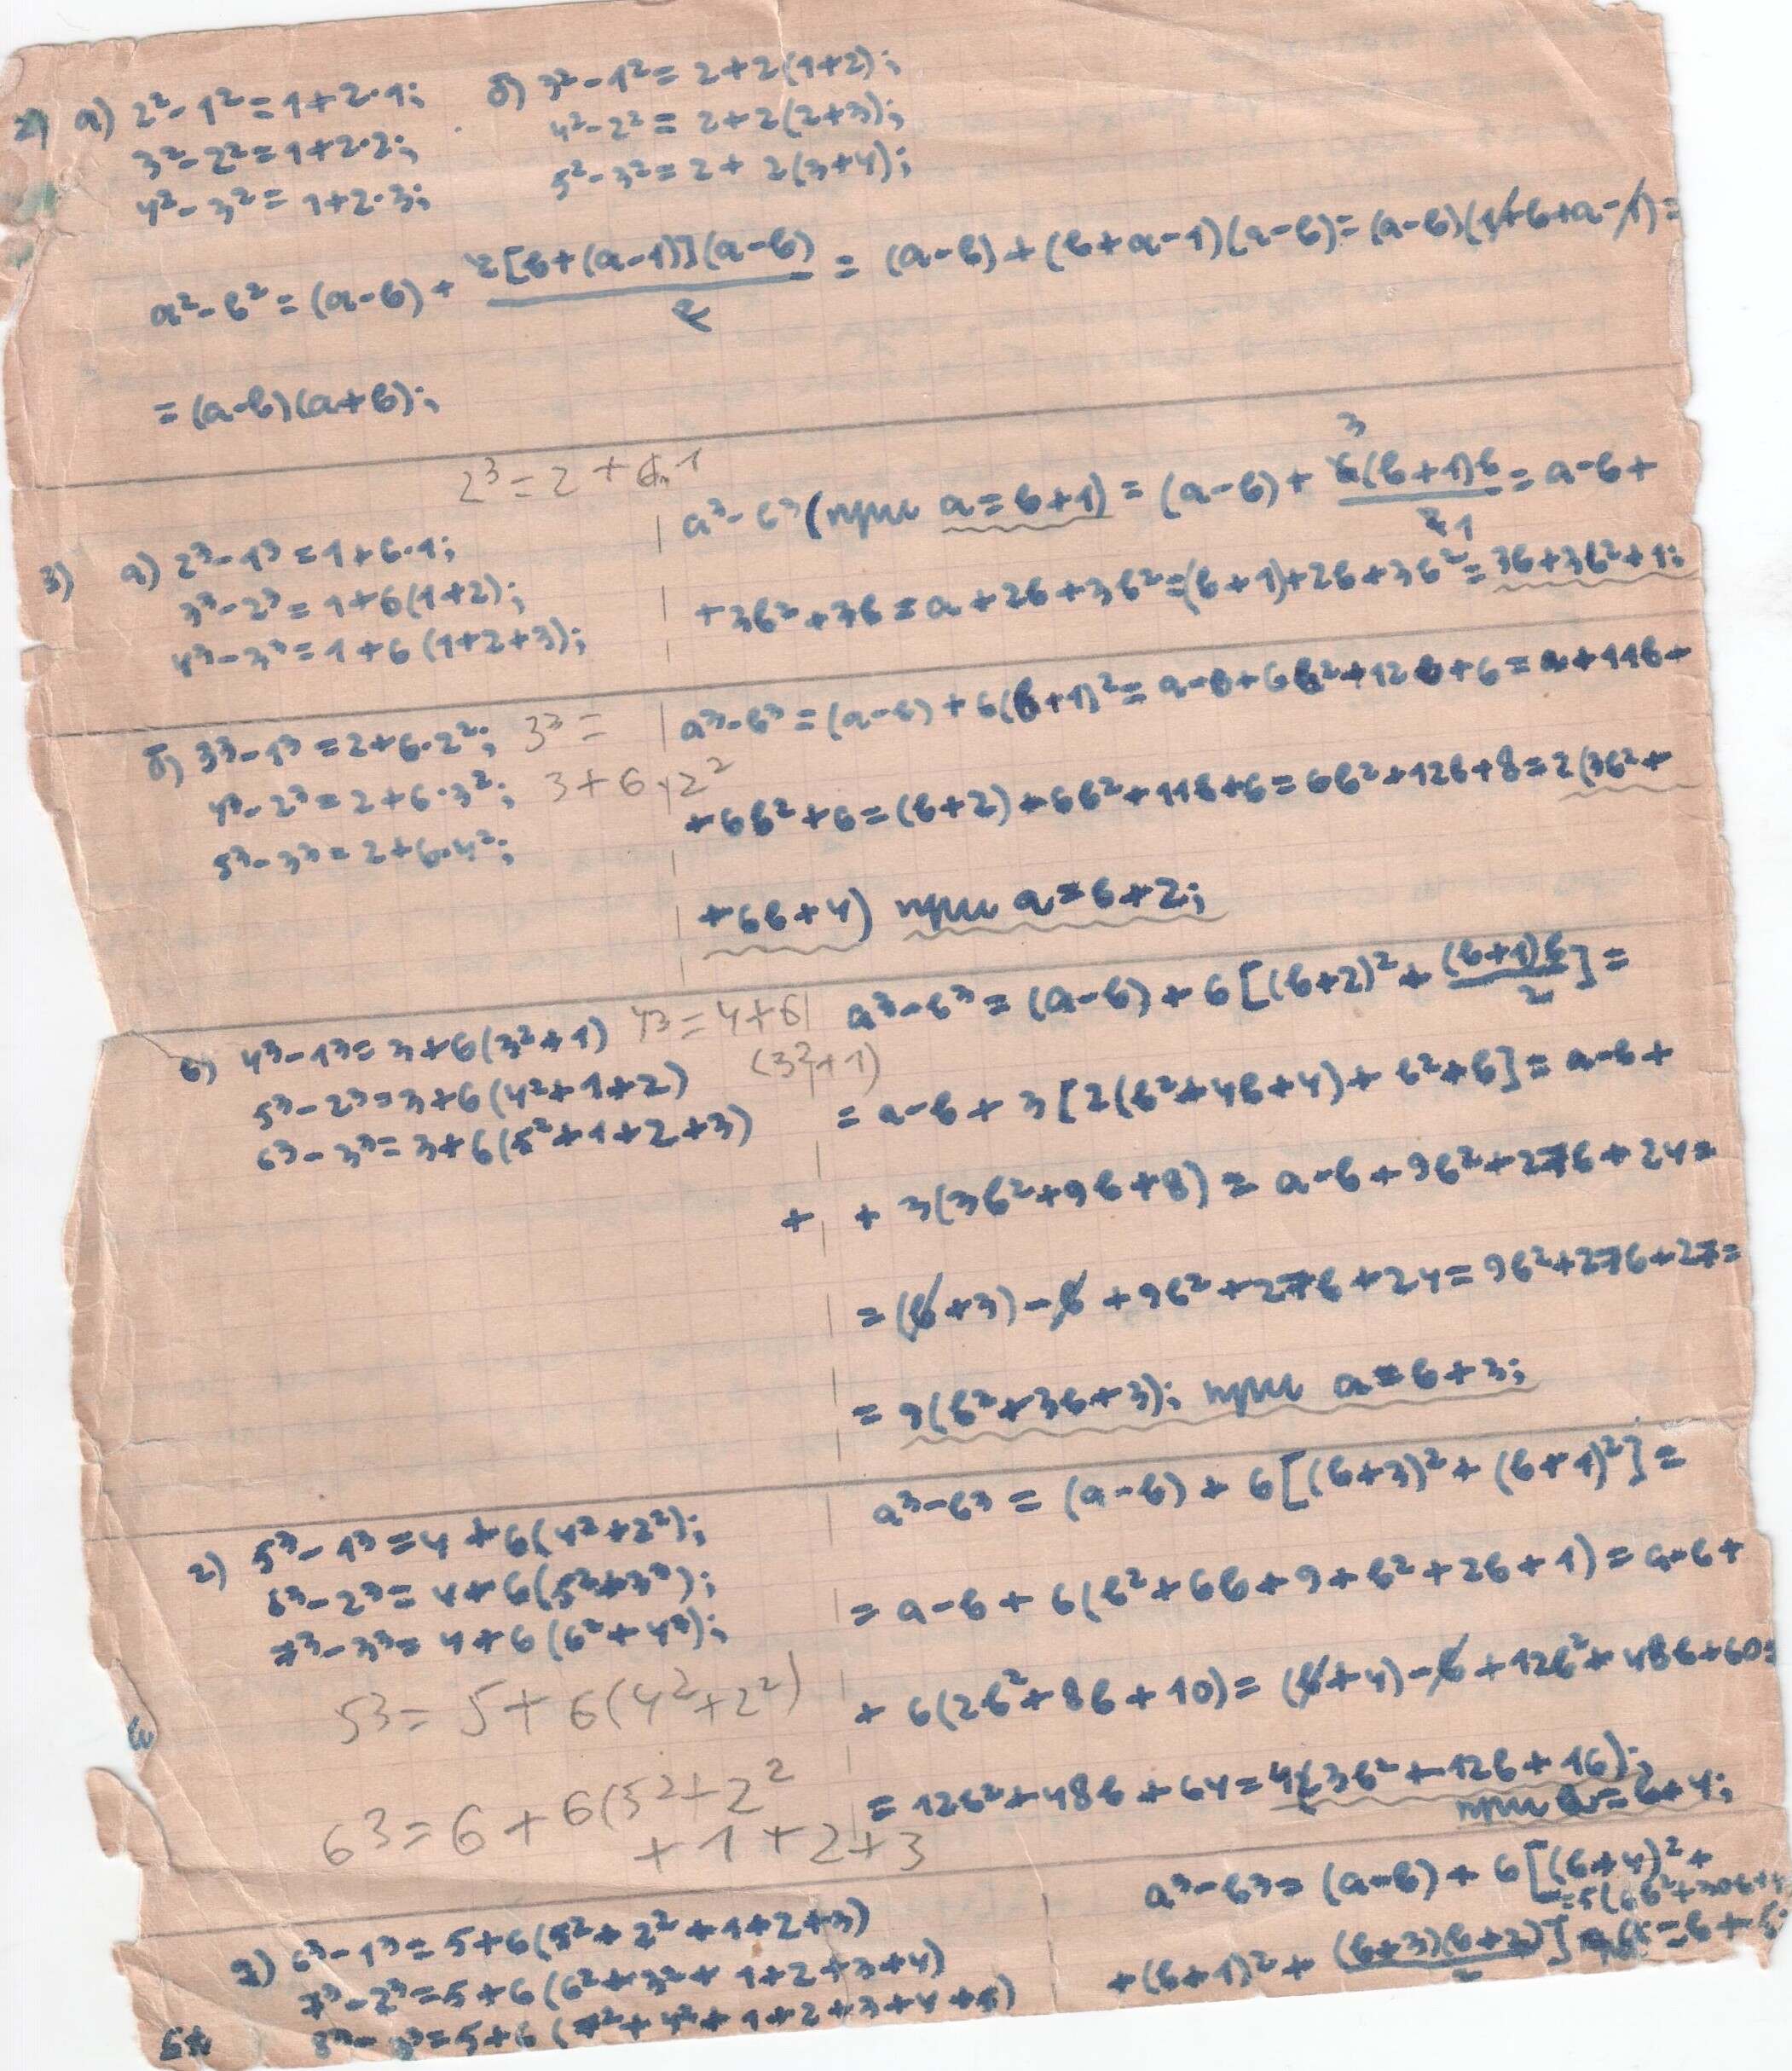 2) а) 2² - 1² = 1 + 2·1; б) 3² - 1² = 2 + 2(1+2);
3² - 2² = 1 + 2·2; 4² - 2² = 2 + 2(2+3);
4² - 3² = 1 + 2·3; 5² - 3² = 2 + 2(3+4);
a² - b² = (a-b) + 2[b+(a-1)](a-b)/2 = (a-b) + (b+a-1)(a-b) = (a-b)(1+b+a-1) =
= (a-b)(a+b);
2³ = 2 + 6·1
3) а) 2³ - 1³ = 1 + 6·1;
3³ - 2³ = 1 + 6(1+2);
4³ - 3³ = 1 + 6(1+2+3);
a³ - b³ (при a = b+1) = (a-b) + 6(b+1)b/2 3 1 = a-b +
+ 3b² + 3b = a + 2b + 3b² = (b+1) + 2b + 3b² = 3b + 3b² + 1;
б) 3³ - 1³ = 2 + 6·2²; 3³ =
4³ - 2³ = 2 + 6·3²; 3 + 6·2²
5³ - 3³ = 2 + 6·4²;
a³ - b³ = (a-b) + 6(b+1)² = a-b + 6b² + 12b + 6 = a + 11b +
+ 6b² + 6 = (b+2) + 6b² + 11b + 6 = 6b² + 12b + 8 = 2(3b² +
+ 6b + 4) при a = b+2;
в) 4³ - 1³ = 3 + 6(3²+1) 4³ = 4 + 6
5³ - 2³ = 3 + 6(4²+1+2) (3²+1)
6³ - 3³ = 3 + 6(5²+1+2+3)
a³ - b³ = (a-b) + 6[(b+2)² + (b+1)b/2] =
= a-b + 3[2(b²+4b+4) + b²+b] = a-b +
+ + 3(3b²+9b+8) = a-b + 9b² + 27b + 24 =
= (b+3) - b + 9b² + 27b + 24 = 9b² + 27b + 27 =
= 9(b²+3b+3); при a = b+3;
г) 5³ - 1³ = 4 + 6(4²+2²);
6³ - 2³ = 4 + 6(5²+3²);
7³ - 3³ = 4 + 6(6²+4²);
5³ = 5 + 6(4²+2²)
6³ = 6 + 6(5²+2²
+ 1 + 2 + 3
a³ - b³ = (a-b) + 6[(b+3)² + (b+1)²] =
= a-b + 6(b²+6b+9+b²+2b+1) = a-b +
+ 6(2b²+8b+10) = (b+4) - b + 12b² + 48b + 60 =
= 12b² + 48b + 64 = 4(3b²+12b+16);
при a = b+4;
д) 6³ - 1³ = 5 + 6(5²+2²+1+2+3)
7³ - 2³ = 5 + 6(6²+3²+1+2+3+4)
8³ - 3³ = 5 + 6(7²+4²+1+2+3+4+5)
a³ - b³ = (a-b) + 6[(b+4)² +
+ (b+1)² + (b+3)(b+2)/2]